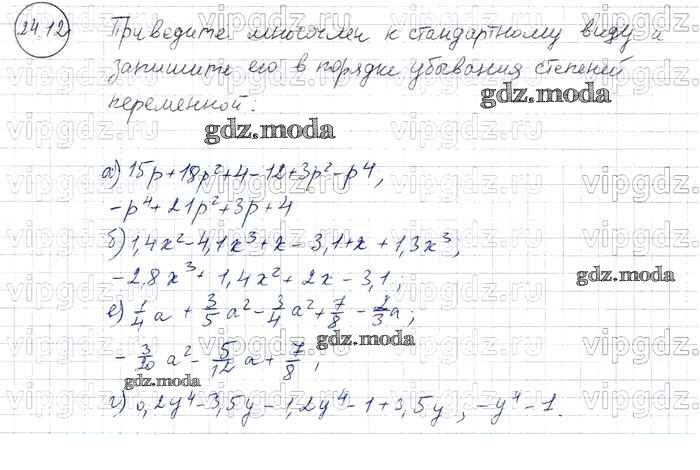 24.12 Приведите многочлен к стандартному виду и
запишите его в порядке убывания степеней
переменной:
gdz.moda
gdz.moda
а) 15p+18p²+4-12+3p²-p⁴,
-p⁴+21p²+3p+4
б) 1,4x²-4,1x³+x-3,1+x+1,3x³,
-2,8x³+1,4x²+2x-3,1;
gdz.moda
в) 1/4 a + 3/5 a² - 3/4 a² + 7/8 - 2/3 a;
gdz.moda
- 3/20 a² - 5/12 a + 7/8;
gdz.moda
г) 0,2y⁴-3,5y-1,2y⁴-1+3,5y, -y⁴-1.
gdz.moda